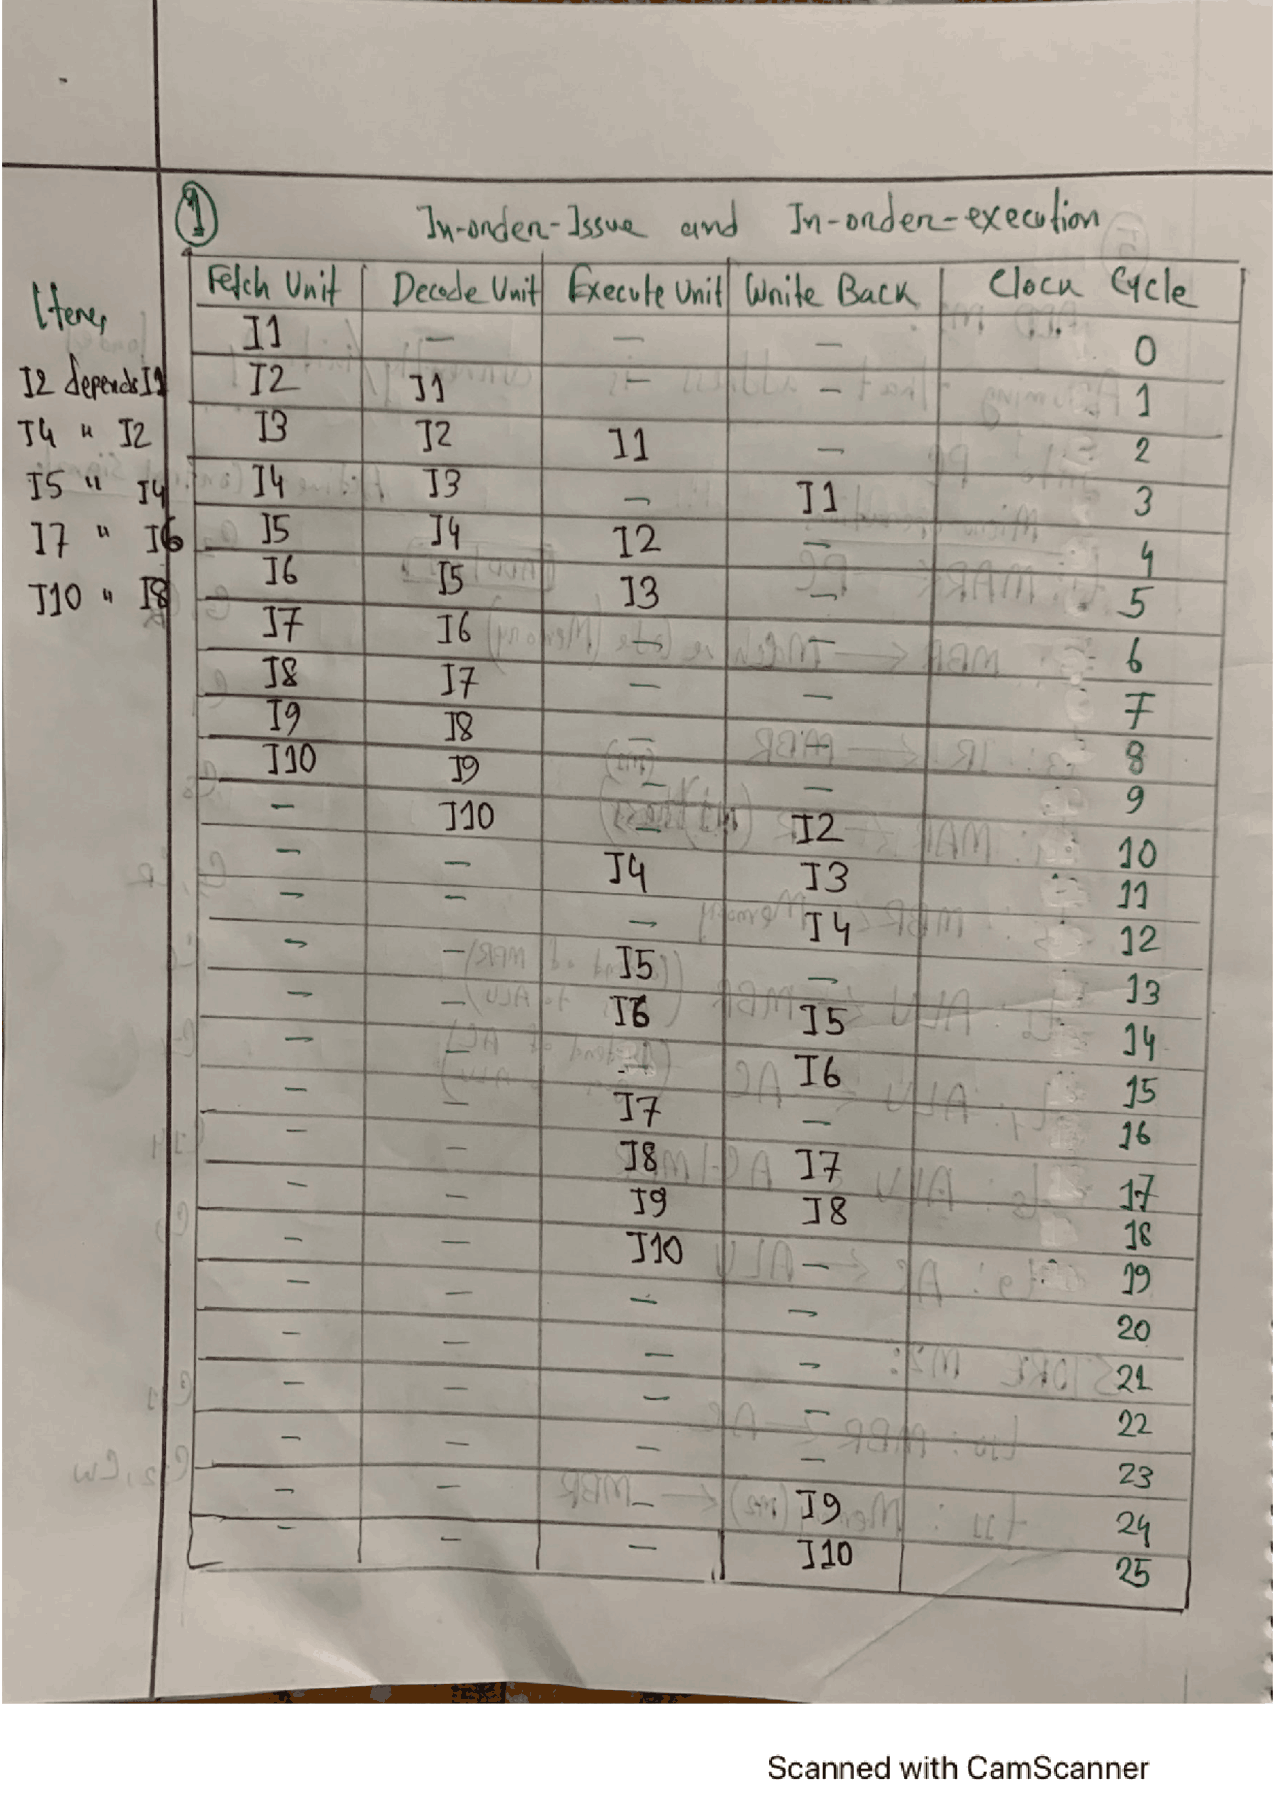 1 In-order-Issue and In-order-execution
Fetch Unit Decode Unit Execute Unit Write Back Clock Cycle
Here,
I2 depends I1
I4 " I2
I5 " I4
I7 " I6
I10 " I8
I1 - - - 0
I2 I1 - - 1
I3 I2 I1 - 2
I4 I3 - I1 3
I5 I4 I2 - 4
I6 I5 I3 - 5
I7 I6 - - 6
I8 I7 - - 7
I9 I8 - - 8
I10 I9 - - 9
- I10 - I2 10
- - I4 I3 11
- - - I4 12
- - I5 - 13
- - I6 I5 14
- - - I6 15
- - I7 - 16
- - I8 I7 17
- - I9 I8 18
- - I10 - 19
- - - - 20
- - - - 21
- - - - 22
- - - - 23
- - - I9 24
- - - I10 25
Scanned with CamScanner